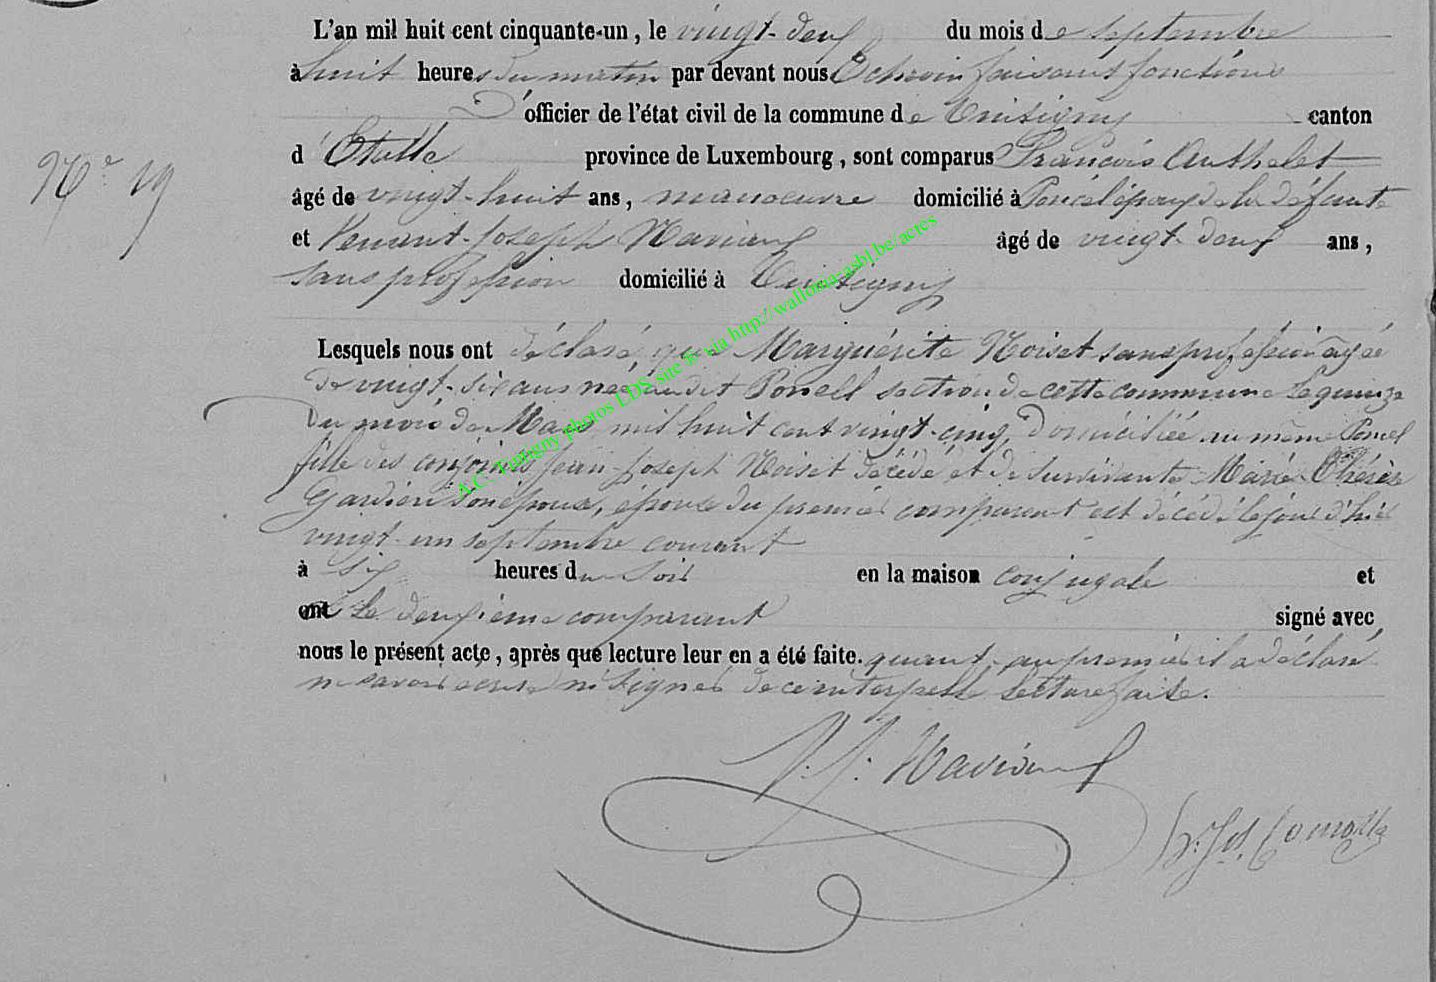 L'an mil huit cent cinquante-un, le vingt-deux du mois de septembre
à huit heures du matin par devant nous Echevin faisant fonctions
D'officier de l'état civil de la commune de Tintigny canton
d'Etalle province de Luxembourg, sont comparus François Authelet
âgé de vingt-huit ans, manoeuvre domicilié à Poncel époux de la défunte
et Venant-Joseph Naviaux âgé de vingt-deux ans,
sans profession domicilié à Tintigny
N° 19
Lesquels nous ont déclaré que Marguérite Noiset sans profession agée
de vingt-six ans née au dit Poncell section de cette commune le quinze
Du mois de Mars mil huit cent vingt-cinq, Domiciliée au même Poncel
fille des conjoints Jean-Joseph Noiset décédé et de survivante Marie Thérèse
Gardien son épouse, épouse du premier comparant est décédé le jour d'hier
vingt-un septembre courant
à six heures du soir en la maison conjugale et
ont le deuxième comparant signé avec
nous le présent acte, après que lecture leur en a été faite. quant au premier il a déclaré
ne savoir écrire ni signer de ce interpellé lecture faite.
A.C. Tintigny photos LDS site & via http://wallonia-asbl.be/actes
V. J. Naviaux